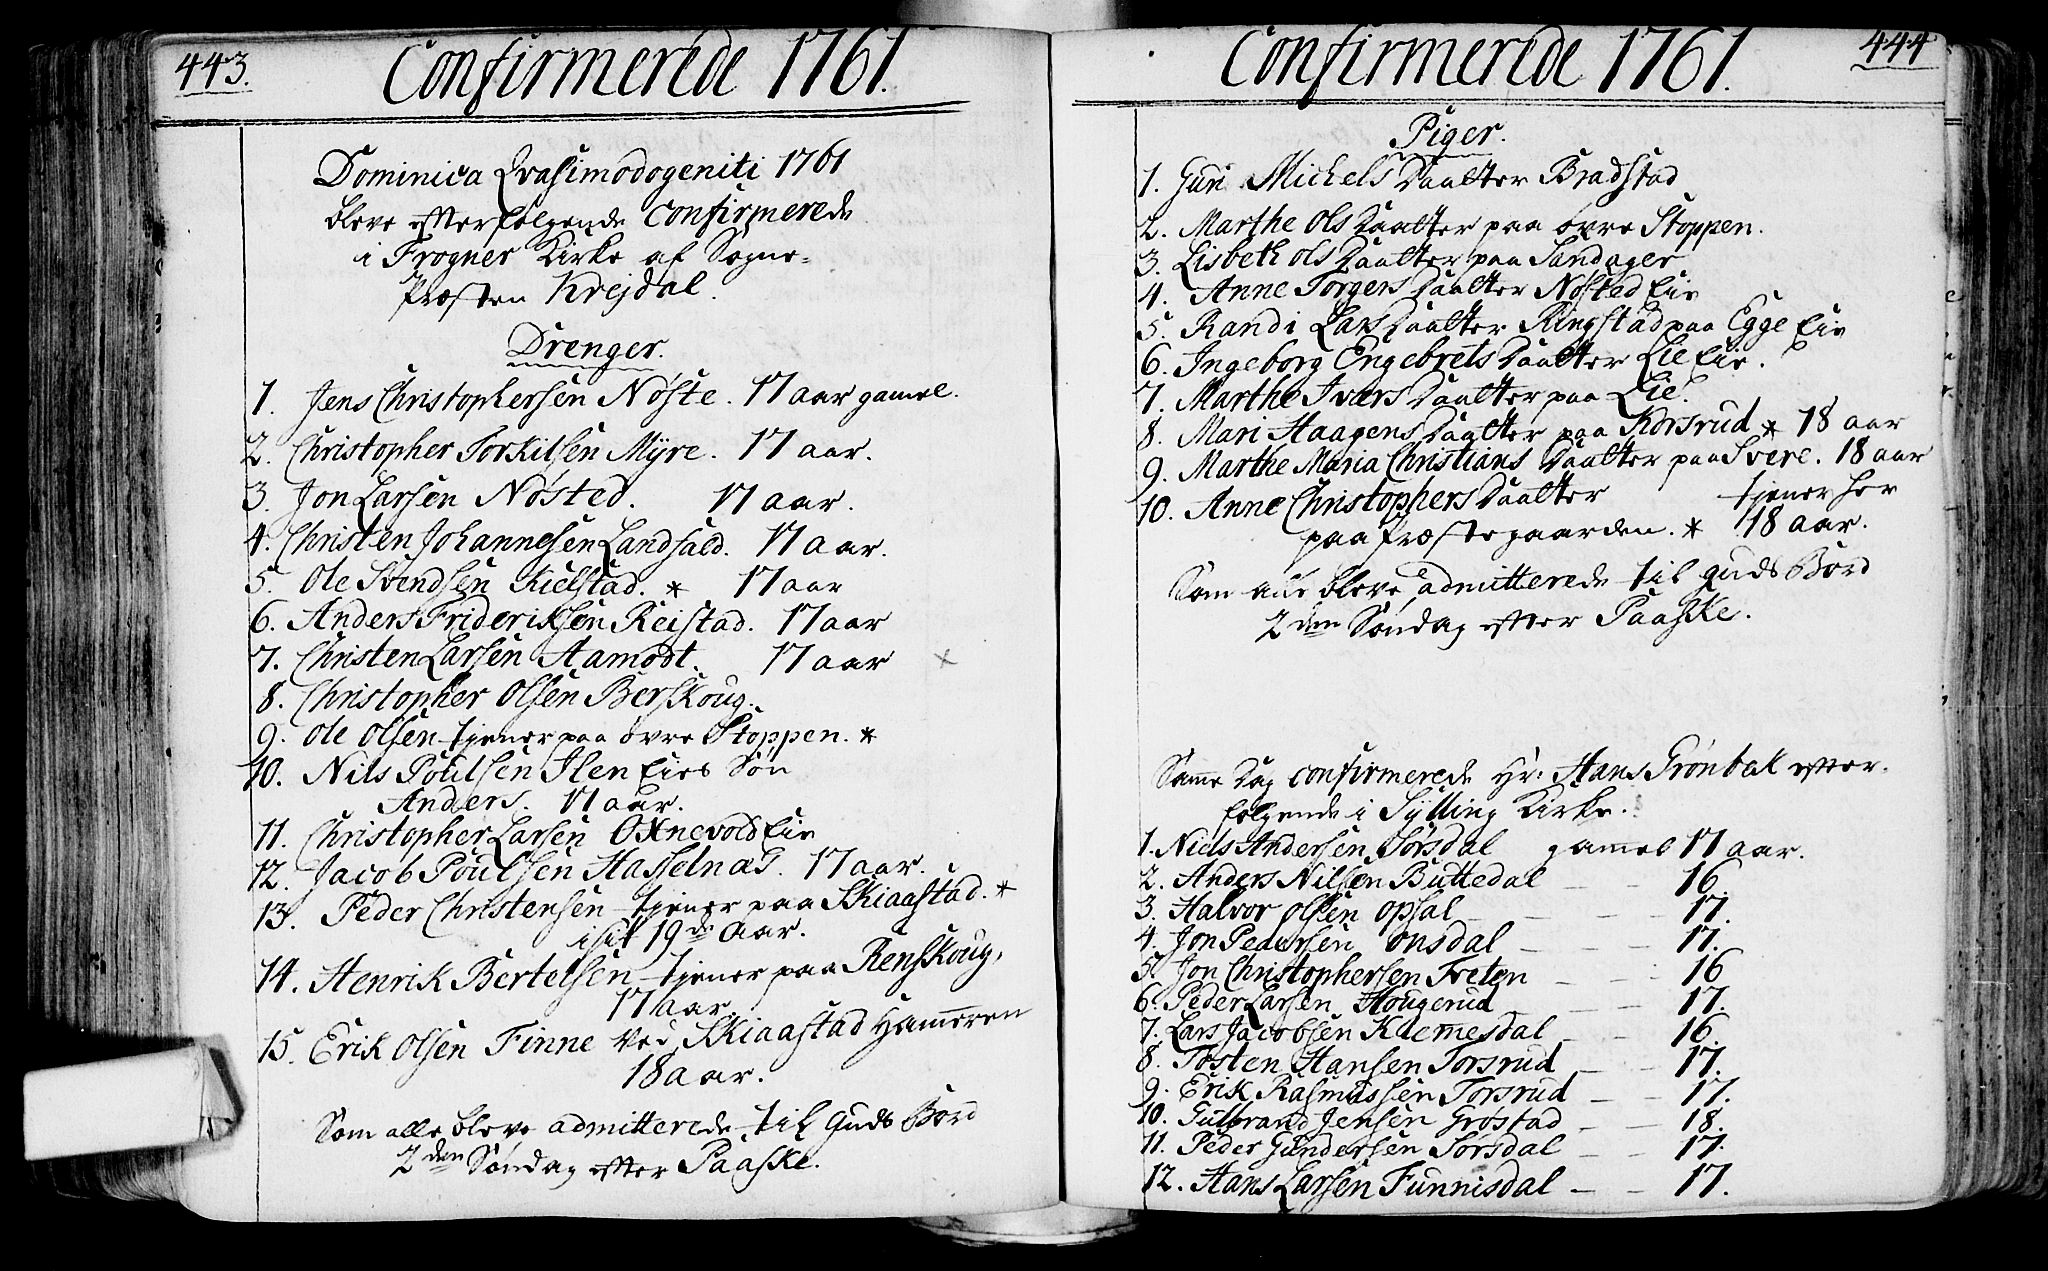 443.
Confirmerede 1761.
Dominica Qvasimodogeniti 1761
bleve efterfølgende Confirmerede
i Frogner Kirke af Sogne-
Præsten Krejdal.
Drenger.
1. Jens Christophersen Nøste. 17 aar gamel.
2. Christopher Torkilsen Myre. 17 aar.
3. Jon Larsen Nøsted. 17 aar.
4. Christen Johannesen Landfald. 17 aar.
5. Ole Svendsen Kielstad. * 17 aar
6. Anders Frideriksen Reistad. 17 aar
7. Christen Larsen Aamodt. 17 aar ×
8. Christopher Olsen Berskoug.
9. Ole Olsen tjener paa øvre Stoppen. *
10. Nils Poulsen Ilen Eies Søn
Anders. 17 aar.
11. Christopher Larsen Oxnevold Eie
12. Jacob Poulsen Hasselnæs. 17 aar.
13. Peder Christensen tjener paa Skiaastad. *
i sit 19de Aar.
14. Henrik Bertelsen tjener paa Renskoug,
17 aar.
15. Erik Olsen Finne ved Skiaastad Hameren
18 aar.
Som alle bleve admitterede til Guds Bord
2den Søndag efter Paaske.
444
Confirmerede 1761.
Piger.
1. Guri Michels Daatter Bradstad
2. Marthe Ols Daatter paa øvre Stoppen.
3. Lisbeth Ols Daatter paa Sandager
4. Anne Torgers Daatter Nøsted Eie
5. Randi Lars Daatter Ringstad paa Egge Eie
6. Ingeborg Engebrets Daatter Lie Eie.
7. Marthe Ivers Daatter paa Lie.
8. Mari Haagens Daatter paa Korsrud * 18 aar
9. Marthe Maria Christians Daatter paa Svere. 18 aar
10. Anne Christophers Daatter tjener her
paa Præstegaarden. * 18 aar.
Som alle bleve admitterede til Guds Bord
2den Søndag efter Paaske.
Samme Dag confirmerede Hr. Hans Grønbek efter-
følgende i Sylling Kirke.
1. Niels Andersen Sørsdal gamel 17 aar.
2. Anders Nilsen Buttedal — — 16.
3. Halvor Olsen Opsal — — — 17.
4. Jon Pedersen Onsdal — — 17.
5. Jon Christophersen Treten — — 16
6. Peder Larsen Hougerud — — 17.
7. Lars Jacobsen Kaemesdal — — 16.
8. Tosten Hansen Torsrud — — 17.
9. Erik Rasmussen Torsrud — — 17.
10. Gulbrand Jensen Grøstad — — 18.
11. Peder Gundersen Sørsdal — — 17.
12. Hans Larsen Funnisdal — — 17.